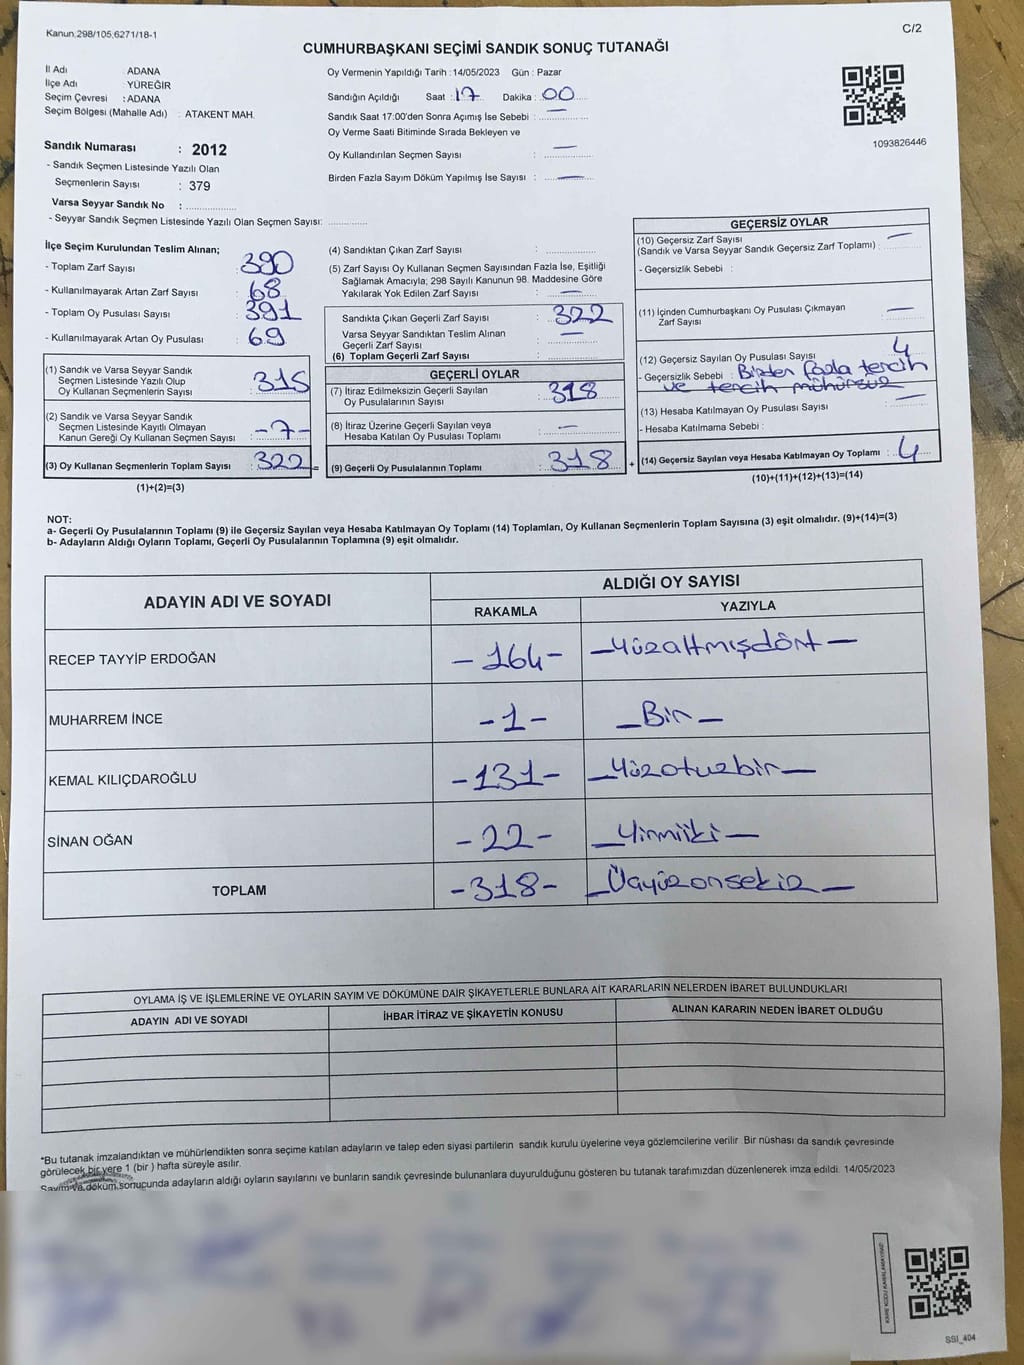 Kanun:298/105,6271/18-1
C/2
CUMHURBAŞKANI SEÇİMİ SANDIK SONUÇ TUTANAĞI
İl Adı : ADANA
İlçe Adı : YÜREĞİR
Seçim Çevresi : ADANA
Seçim Bölgesi (Mahalle Adı) : ATAKENT MAH.
Sandık Numarası : 2012
- Sandık Seçmen Listesinde Yazılı Olan
Seçmenlerin Sayısı : 379
Varsa Seyyar Sandık No :
- Seyyar Sandık Seçmen Listesinde Yazılı Olan Seçmen Sayısı:
Oy Vermenin Yapıldığı Tarih : 14/05/2023 Gün : Pazar
Sandığın Açıldığı Saat : 17 Dakika : 00
Sandık Saat 17:00'den Sonra Açımış İse Sebebi : —
Oy Verme Saati Bitiminde Sırada Bekleyen ve
Oy Kullandırılan Seçmen Sayısı : —
Birden Fazla Sayım Döküm Yapılmış İse Sayısı : —
1093826446
İlçe Seçim Kurulundan Teslim Alınan;
- Toplam Zarf Sayısı : 390
- Kullanılmayarak Artan Zarf Sayısı : 68
- Toplam Oy Pusulası Sayısı : 391
- Kullanılmayarak Artan Oy Pusulası : 69
(1) Sandık ve Varsa Seyyar Sandık
Seçmen Listesinde Yazılı Olup
Oy Kullanan Seçmenlerin Sayısı : 315
(2) Sandık ve Varsa Seyyar Sandık
Seçmen Listesinde Kayıtlı Olmayan
Kanun Gereği Oy Kullanan Seçmen Sayısı : -7-
(3) Oy Kullanan Seçmenlerin Toplam Sayısı : 322
=
(1)+(2)=(3)
(4) Sandıktan Çıkan Zarf Sayısı :
(5) Zarf Sayısı Oy Kullanan Seçmen Sayısından Fazla İse, Eşitliği
Sağlamak Amacıyla; 298 Sayılı Kanunun 98. Maddesine Göre
Yakılarak Yok Edilen Zarf Sayısı : —
Sandıkta Çıkan Geçerli Zarf Sayısı : 322
Varsa Seyyar Sandıktan Teslim Alınan
Geçerli Zarf Sayısı : —
(6) Toplam Geçerli Zarf Sayısı :
GEÇERLİ OYLAR
(7) İtiraz Edilmeksizin Geçerli Sayılan
Oy Pusulalarının Sayısı : 318
(8) İtiraz Üzerine Geçerli Sayılan veya
Hesaba Katılan Oy Pusulası Toplamı : —
(9) Geçerli Oy Pusulalarının Toplamı : 318
+
GEÇERSİZ OYLAR
(10) Geçersiz Zarf Sayısı
(Sandık ve Varsa Seyyar Sandık Geçersiz Zarf Toplamı) : —
- Geçersizlik Sebebi :
(11) İçinden Cumhurbaşkanı Oy Pusulası Çıkmayan
Zarf Sayısı : —
(12) Geçersiz Sayılan Oy Pusulası Sayısı : 4
- Geçersizlik Sebebi : Birden fazla tercih
ve tercih mühürsüz
(13) Hesaba Katılmayan Oy Pusulası Sayısı : —
- Hesaba Katılmama Sebebi :
(14) Geçersiz Sayılan veya Hesaba Katılmayan Oy Toplamı : 4
(10)+(11)+(12)+(13)=(14)
NOT:
a- Geçerli Oy Pusulalarının Toplamı (9) ile Geçersiz Sayılan veya Hesaba Katılmayan Oy Toplamı (14) Toplamları, Oy Kullanan Seçmenlerin Toplam Sayısına (3) eşit olmalıdır. (9)+(14)=(3)
b- Adayların Aldığı Oyların Toplamı, Geçerli Oy Pusulalarının Toplamına (9) eşit olmalıdır.
ADAYIN ADI VE SOYADI
ALDIĞI OY SAYISI
RAKAMLA YAZIYLA
RECEP TAYYİP ERDOĞAN - 164 - — Yüzaltmışdört —
MUHARREM İNCE - 1 - — Bir —
KEMAL KILIÇDAROĞLU - 131 - — Yüzotuzbir —
SİNAN OĞAN - 22 - — Yirmiiki —
TOPLAM - 318 - — Üçyüzonsekiz —
OYLAMA İŞ VE İŞLEMLERİNE VE OYLARIN SAYIM VE DÖKÜMÜNE DAİR ŞİKAYETLERLE BUNLARA AİT KARARLARIN NELERDEN İBARET BULUNDUKLARI
ADAYIN ADI VE SOYADI İHBAR İTİRAZ VE ŞİKAYETİN KONUSU ALINAN KARARIN NEDEN İBARET OLDUĞU
*Bu tutanak imzalandıktan ve mühürlendikten sonra seçime katılan adayların ve talep eden siyasi partilerin sandık kurulu üyelerine veya gözlemcilerine verilir. Bir nüshası da sandık çevresinde
görülecek bir yere 1 (bir ) hafta süreyle asılır.
Sayım ve döküm sonucunda adayların aldığı oyların sayılarını ve bunların sandık çevresinde bulunanlara duyurulduğunu gösteren bu tutanak tarafımızdan düzenlenerek imza edildi. 14/05/2023
SSİ_404